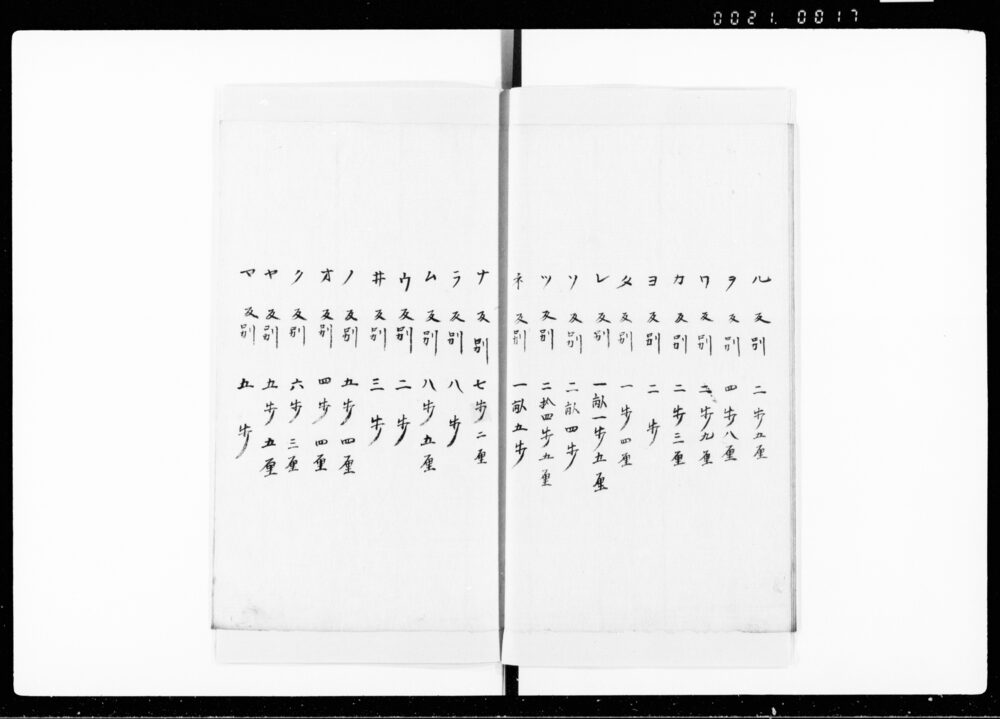 0021. 0017
ル 反別 二歩五厘
ヲ 反別 四歩八厘
ワ 反別 二歩九厘
カ 反別 二歩三厘
ヨ 反別 二歩
タ 反別 一歩四厘
レ 反別 一畝一歩五厘
ソ 反別 二畝四歩
ツ 反別 二拾四歩五厘
ネ 反別 一畝五歩
ナ 反別 七歩二厘
ラ 反別 八歩
ム 反別 八歩五厘
ウ 反別 二歩
井 反別 三歩
ノ 反別 五歩四厘
オ 反別 四歩四厘
ク 反別 六歩三厘
ヤ 反別 五歩五厘
マ 反別 五歩